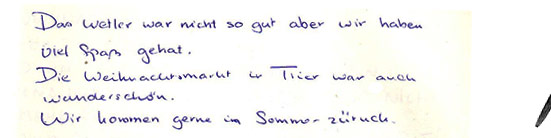 Das Wetter war nicht so gut aber wir haben
viel Spaß gehat.
Die Weihnachtsmarkt in Trier war auch
wunderschön.
Wir kommen gerne im Sommer zürück.